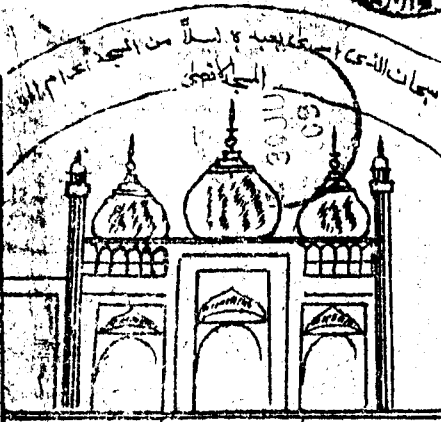 سبحان الذى اسرى بعبده ليلاً من المسجد الحرام الى
المسجد الاقصى
30 JU
09